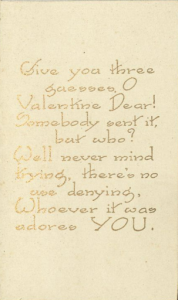 Give you three
guesses, O
Valentine Dear!
Somebody sent it,
but who?
Well never mind
trying, there's no
use denying,
Whoever it was
adores YOU.